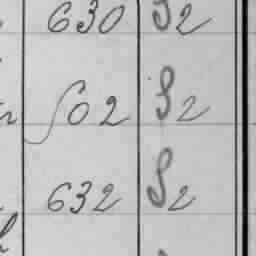 630 S2
502 S2
632 S2